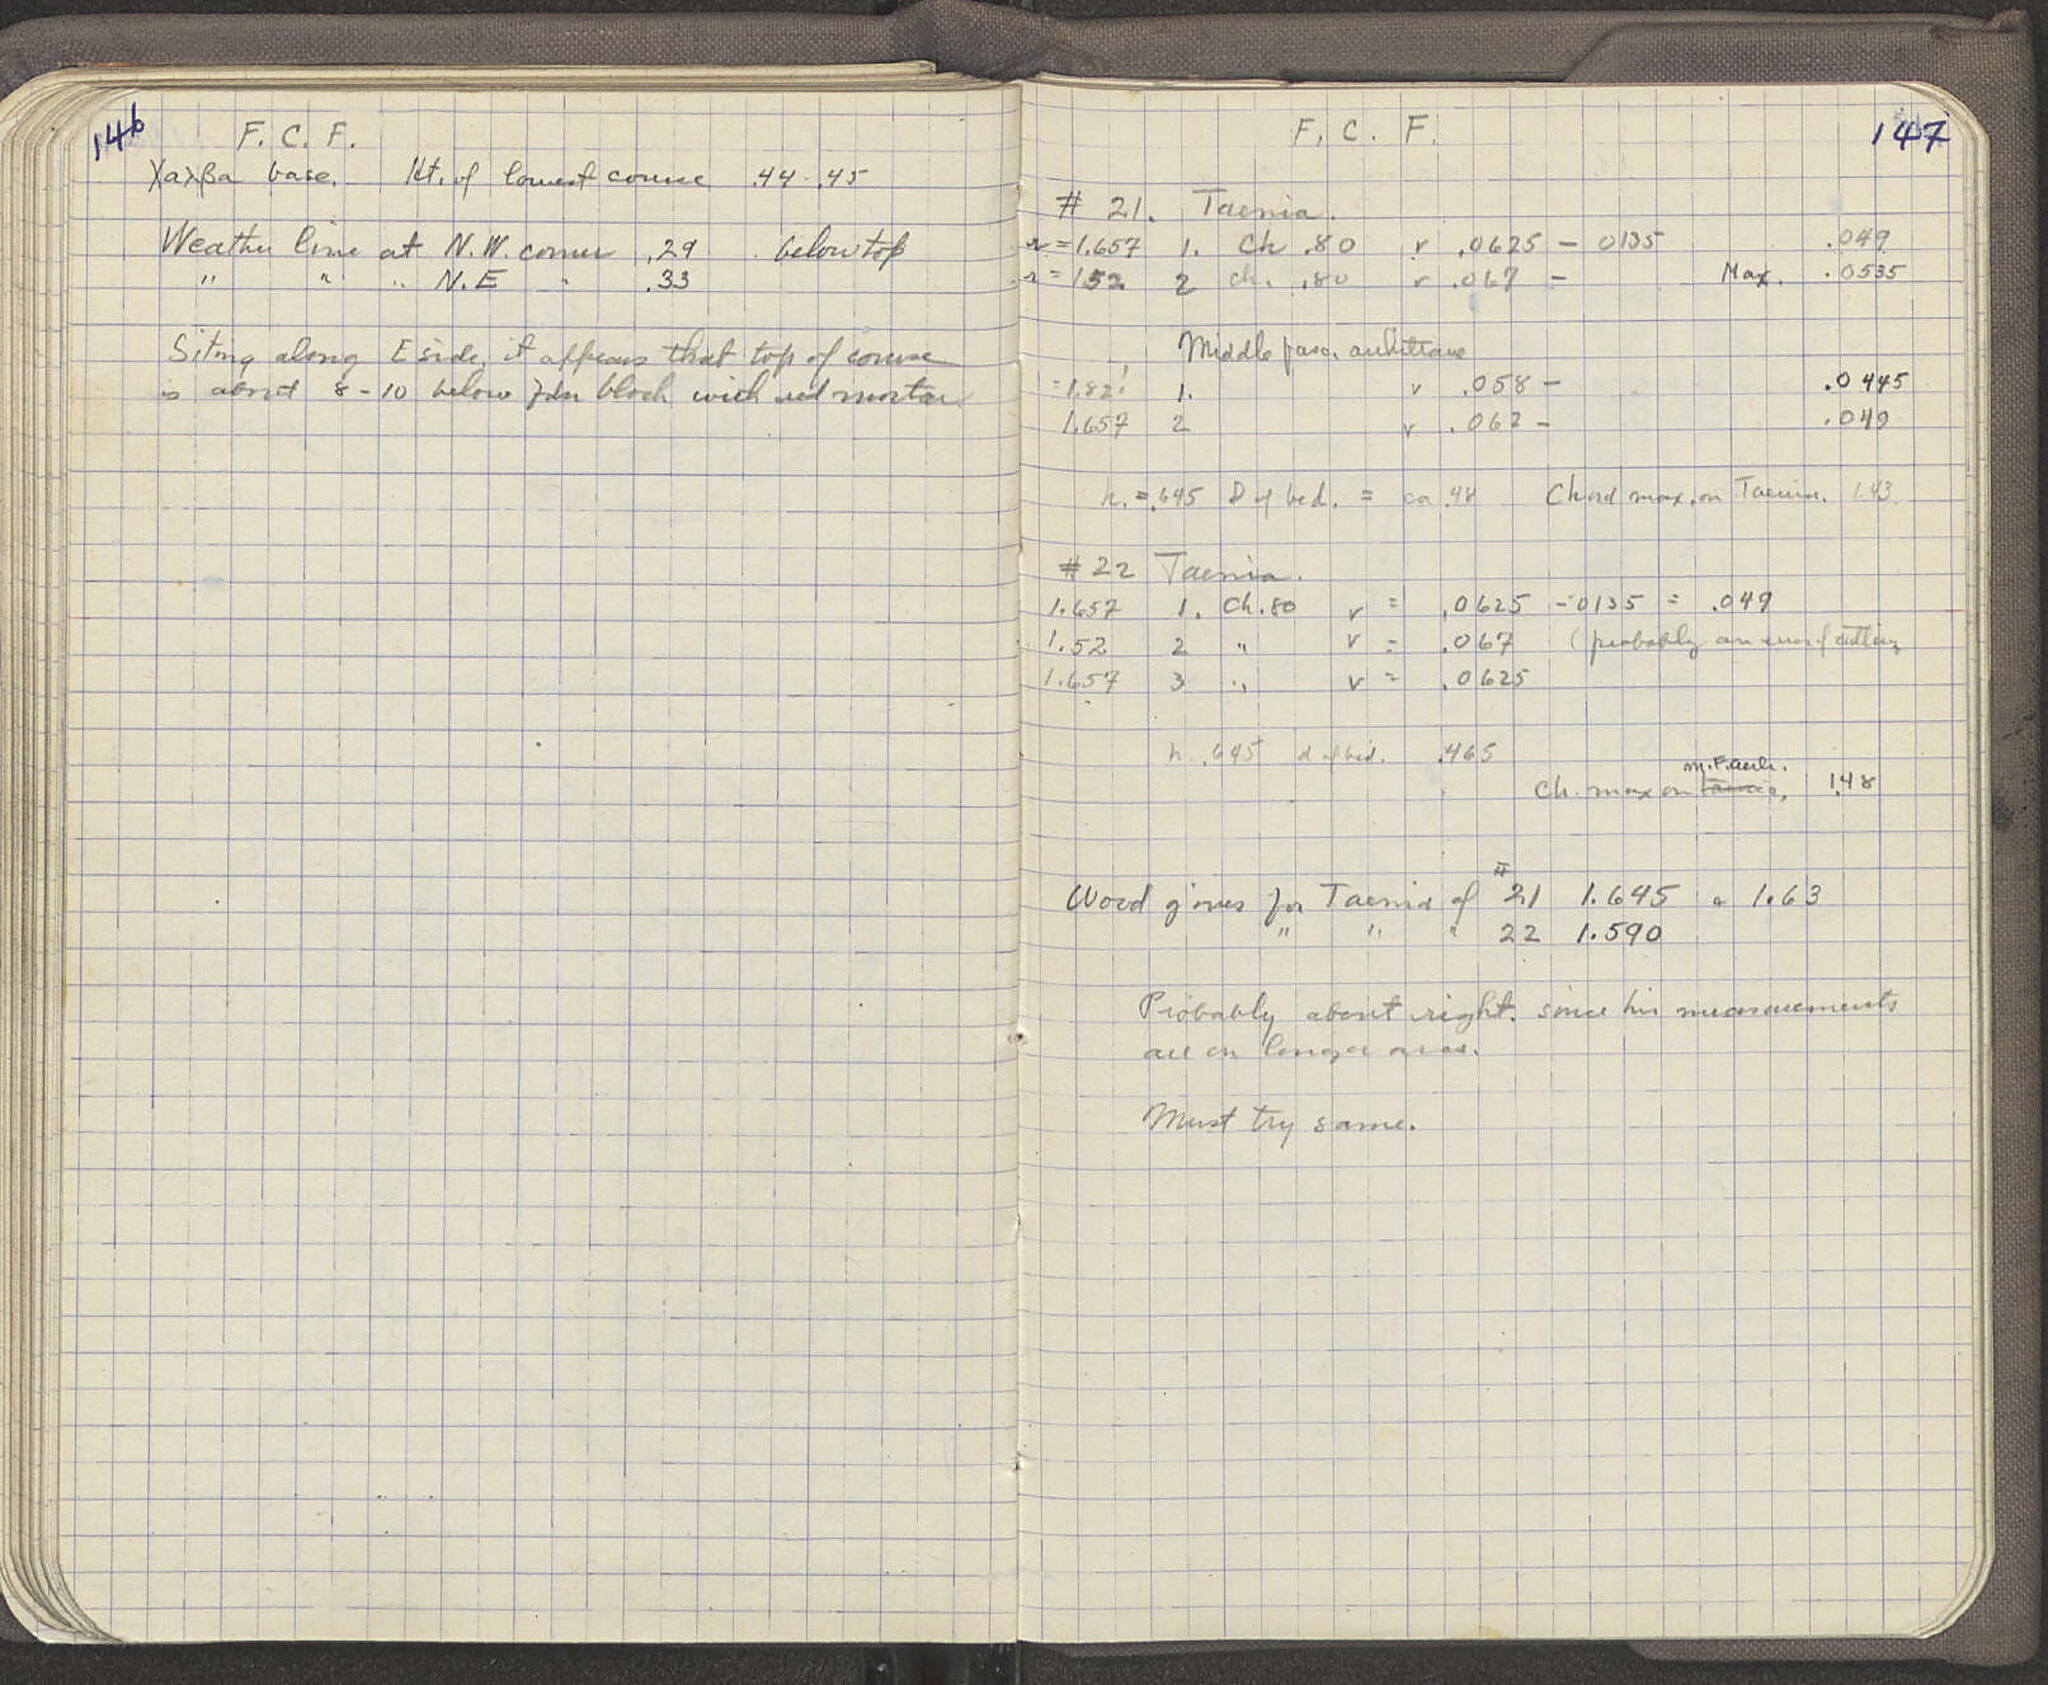 146
F. C. F.
χαλβα base. Ht. of lowest course .44 - .45
Weather line at N.W. corner .29 below top
" " " N.E " .33
Siting along E side, it appears that top of course
is about 8-10 below block with red mortar
147
F. C. F.
# 21. Taenia.
r = 1.657 1. Ch .80 v .0625 - 0135 .049
r = 1.52 2 ch. .80 v .067 - Max. .0535
Middle fasc. architrave
= 1.82! 1. v .058 - .0445
1.657 2 v .062 - .049
h. = .645 D of bed. = ca .48 Chord max. on Taenia. 1.43
# 22 Taenia.
1.657 1. Ch .80 v = .0625 - 0135 = .049
1.52 2 " v = .067 (probably an error of cutting
1.657 3 " v = .0625
h. .645 d of bed. .465
m. F. arch.
Ch. max on Taenia, 1.48
Wood gives for Taenia of # 21 1.645 & 1.63
" " " 22 1.590
Probably about right. since his measurements
are on longer arcs.
Must try same.